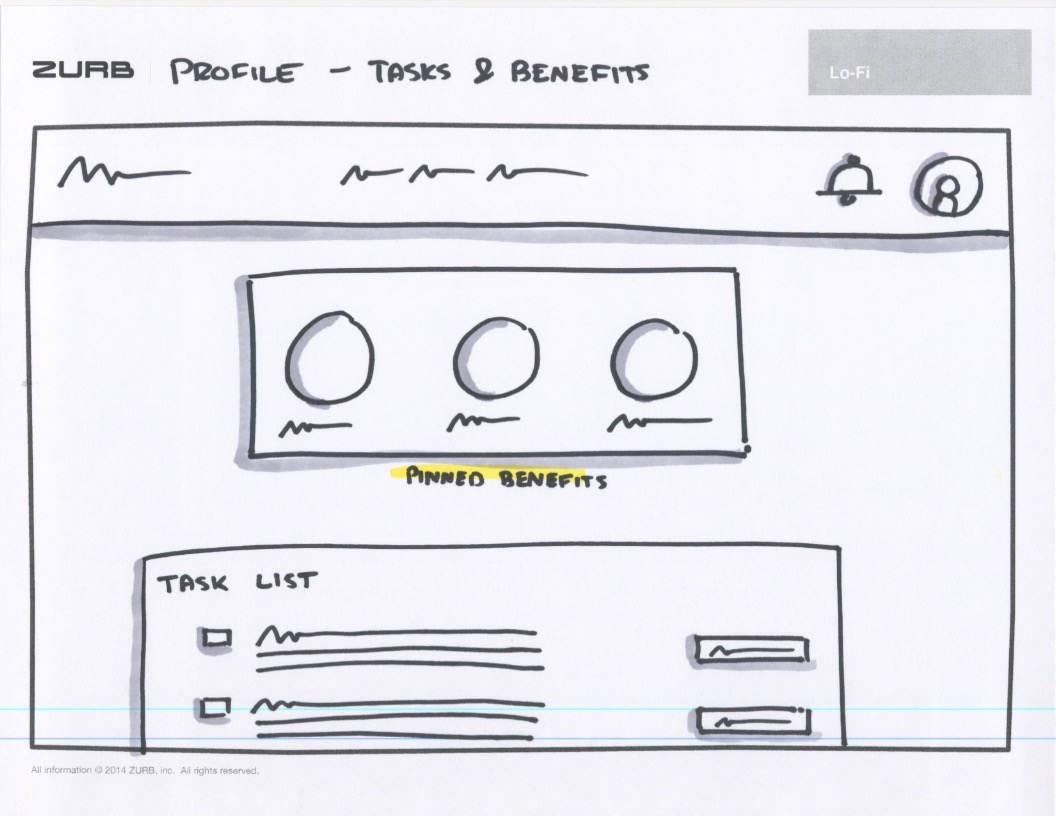 ZURB PROFILE - TASKS & BENEFITS
Lo-Fi
PINNED BENEFITS
TASK LIST
All information © 2014 ZURB, inc. All rights reserved.